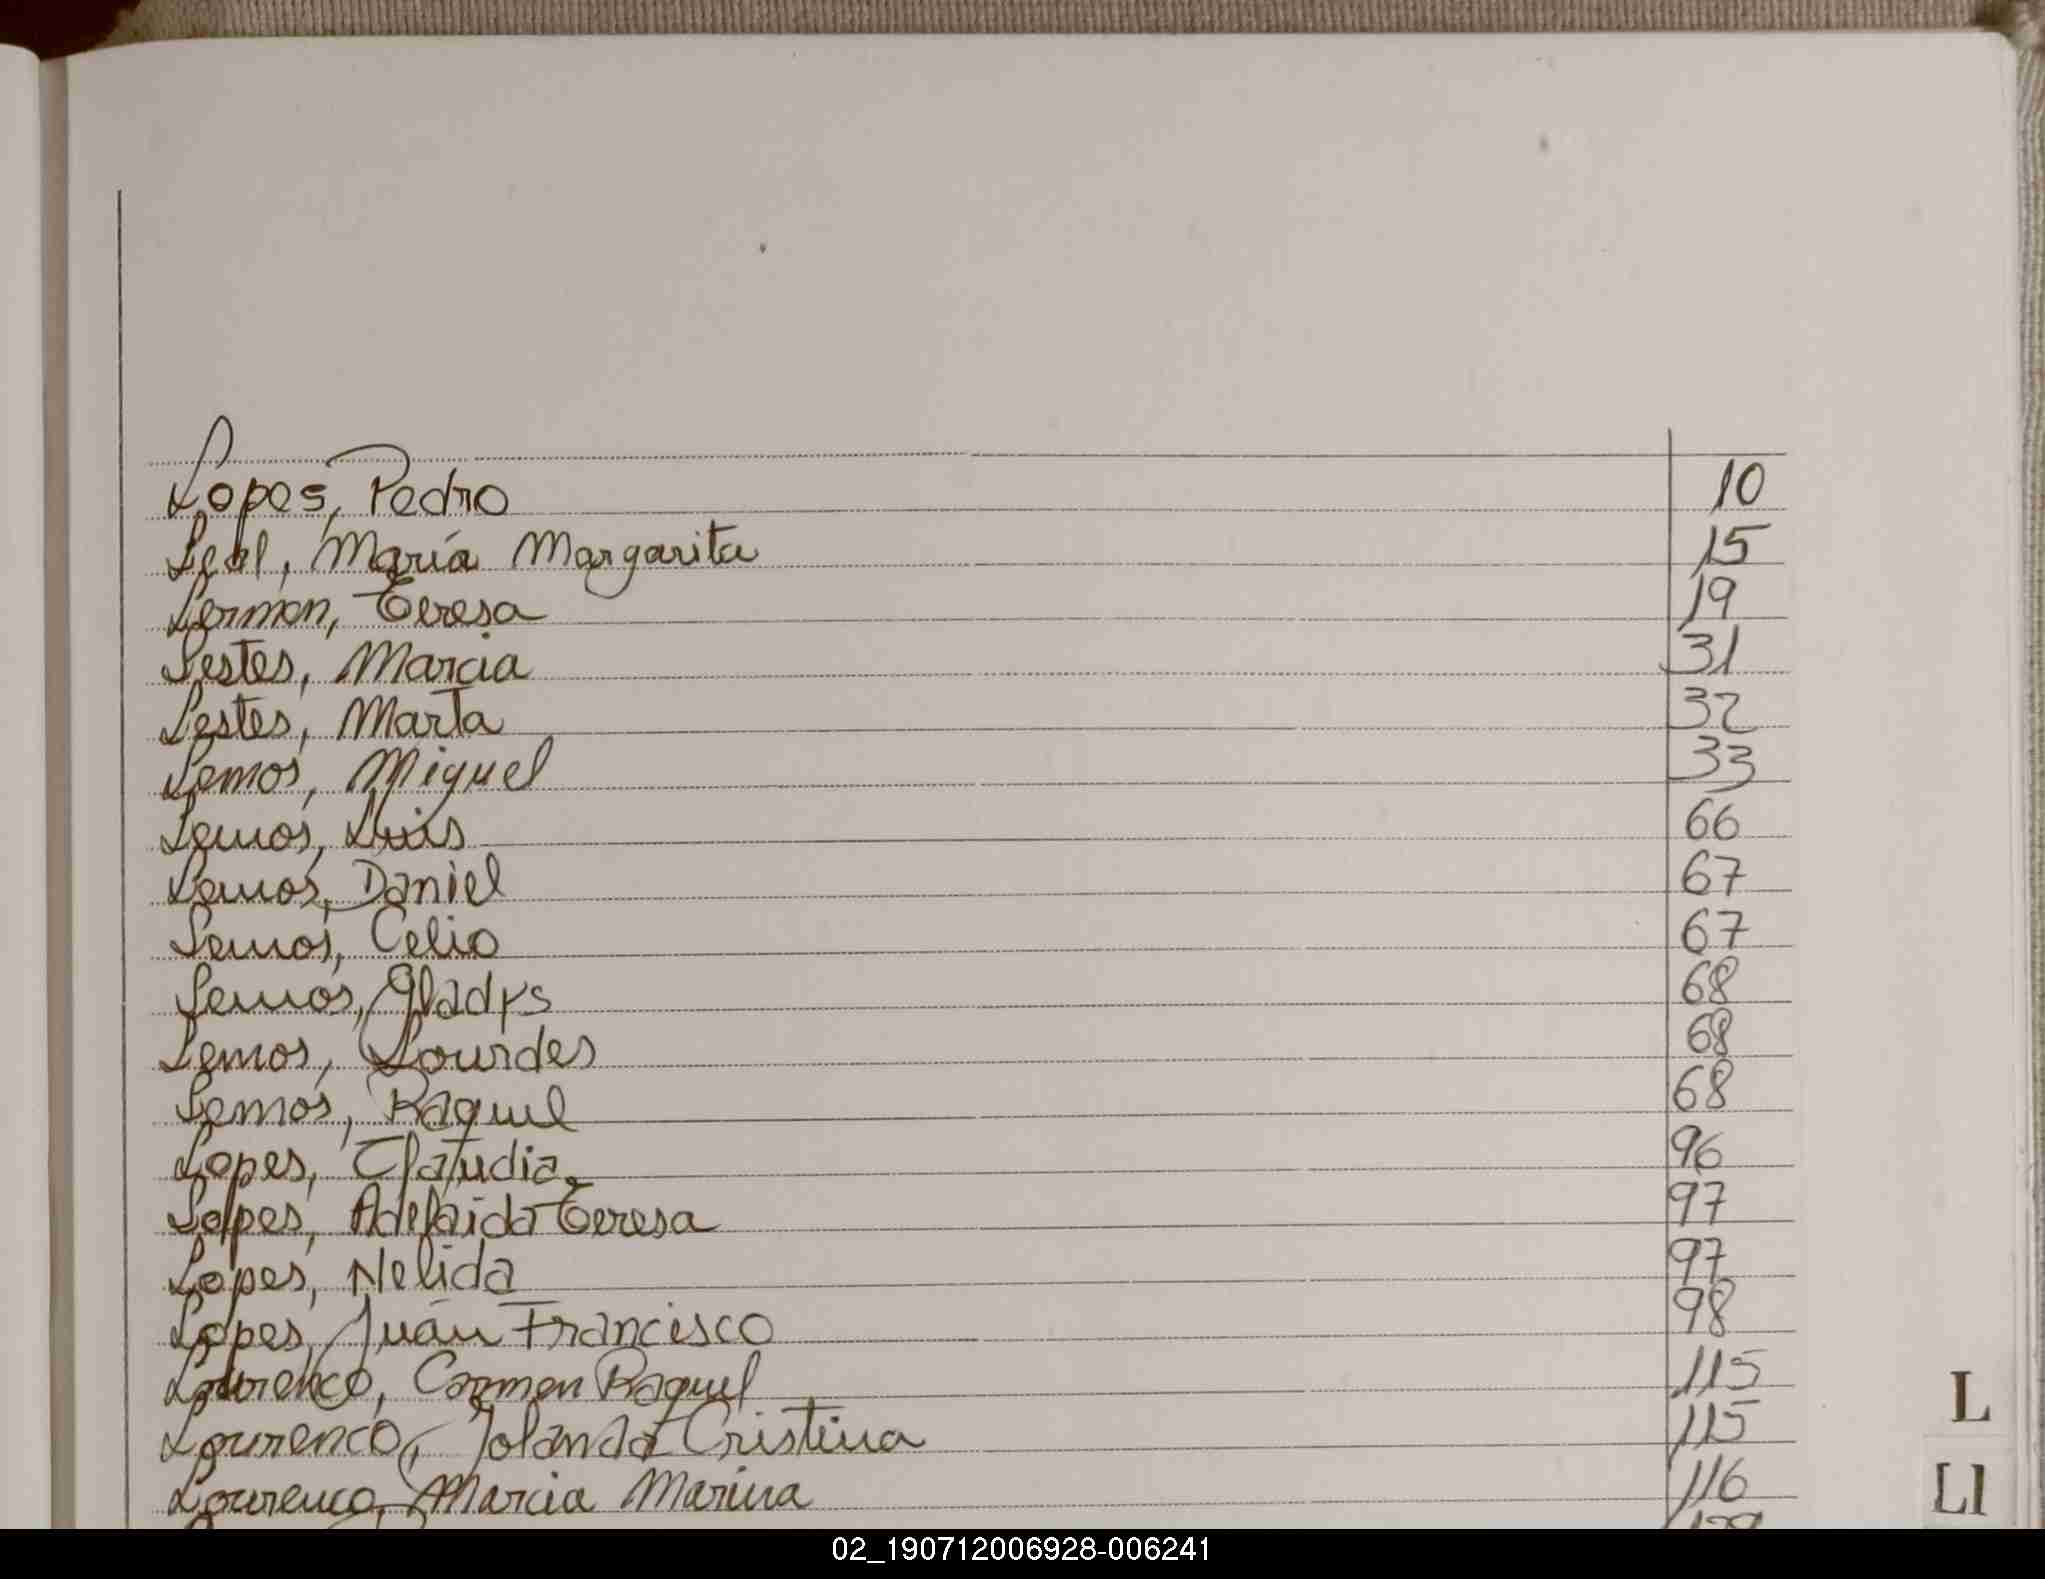 Lopes, Pedro 10
Leal, María Margarita 15
Lermen, Teresa 19
Lestes, Marcia 31
Lestes, Marta 32
Lemos, Miguel 33
Lemos, Luis 66
Lemos, Daniel 67
Lemos, Celio 67
Lemos, Gladys 68
Lemos, Lourdes 68
Lemos, Raquel 68
Lopes, Claudia 96
Lopes, Adelaida Teresa 97
Lopes, Nelida 97
Lopes, Juán Francisco 98
Lourenco, Carmen Raquel 115
L
Lourenco, Jolanda Cristina 115
Lourenco, Marcia Marina 116
Ll
02_190712006928-006241